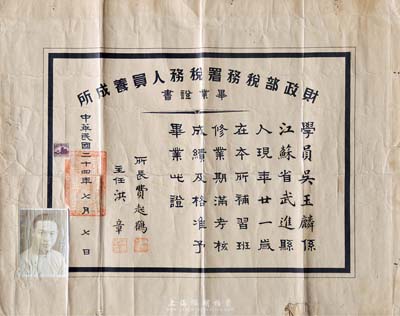 財政部稅務署稅務人員養成所
畢業證書
學員吳玉麟係
江蘇省武進縣
人現年廿一歲
在本所補習班
修業期滿考核
成績及格准予
畢業此證
所長費起鶴
主任洪章
中華民國二十四年七月七日